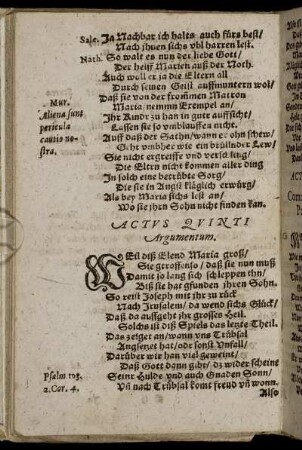 Sale. Ja Nachbar ich halts auch fürs best/
Nach jhnen sichs vbl harren lest.
Nath. So walt es nun der liebe Gott/
Der helff Marien auß der Noth.
Auch woll er ja die Eltern all
Durch seinen Geist auffmuntern wol/
Daß sie von der frommen Matron
Maria nemmn Exempel an/
Mur.
Aliena sunt
pericula
cautio no-
stra.
Ihr Kindr zu han in gutr auffsicht/
Lassen sie so vmblauffen nicht.
Auff daß der Sathn/wann er ohn schew/
Geht vmbher wie ein brüllnder Lew/
Sie nicht ergreiffe vnd verschling/
Die Eltrn nicht kommen aller ding
In solch eine betrübte Sorg/
Die sie in Angst kläglich erwürg/
Als bey Maria sichs lest an/
Wo sie jhrn Sohn nicht finden kan.
ACTVS QVINTI
Argumentum.
WEil diß Elend Maria groß/
Sie getroffen so/ daß sie nun muß
Damit so lang sich schleppen thn/
Biß sie hat gfunden jhren Sohn.
So reist Joseph mit jhr zu rück
Nach Jerusalem/ da wend sichs Glück/
Daß da auffgeht jhr grosses Heil.
Solchs ist diß Spiels das letzte Theil.
Das zeiget an/wann vns Trübsal
Angsetzet hat/odr sonst Vnfall/
Darüber wir han viel geweint/
Psalm 105.
2. Cor. 4.
Daß Gott dann gibt/ dz wider scheint
Seinr Hulde vnd auch Gnaden Sonn/
Vñ nach Trübsal komt freud vñ wonn.
Also